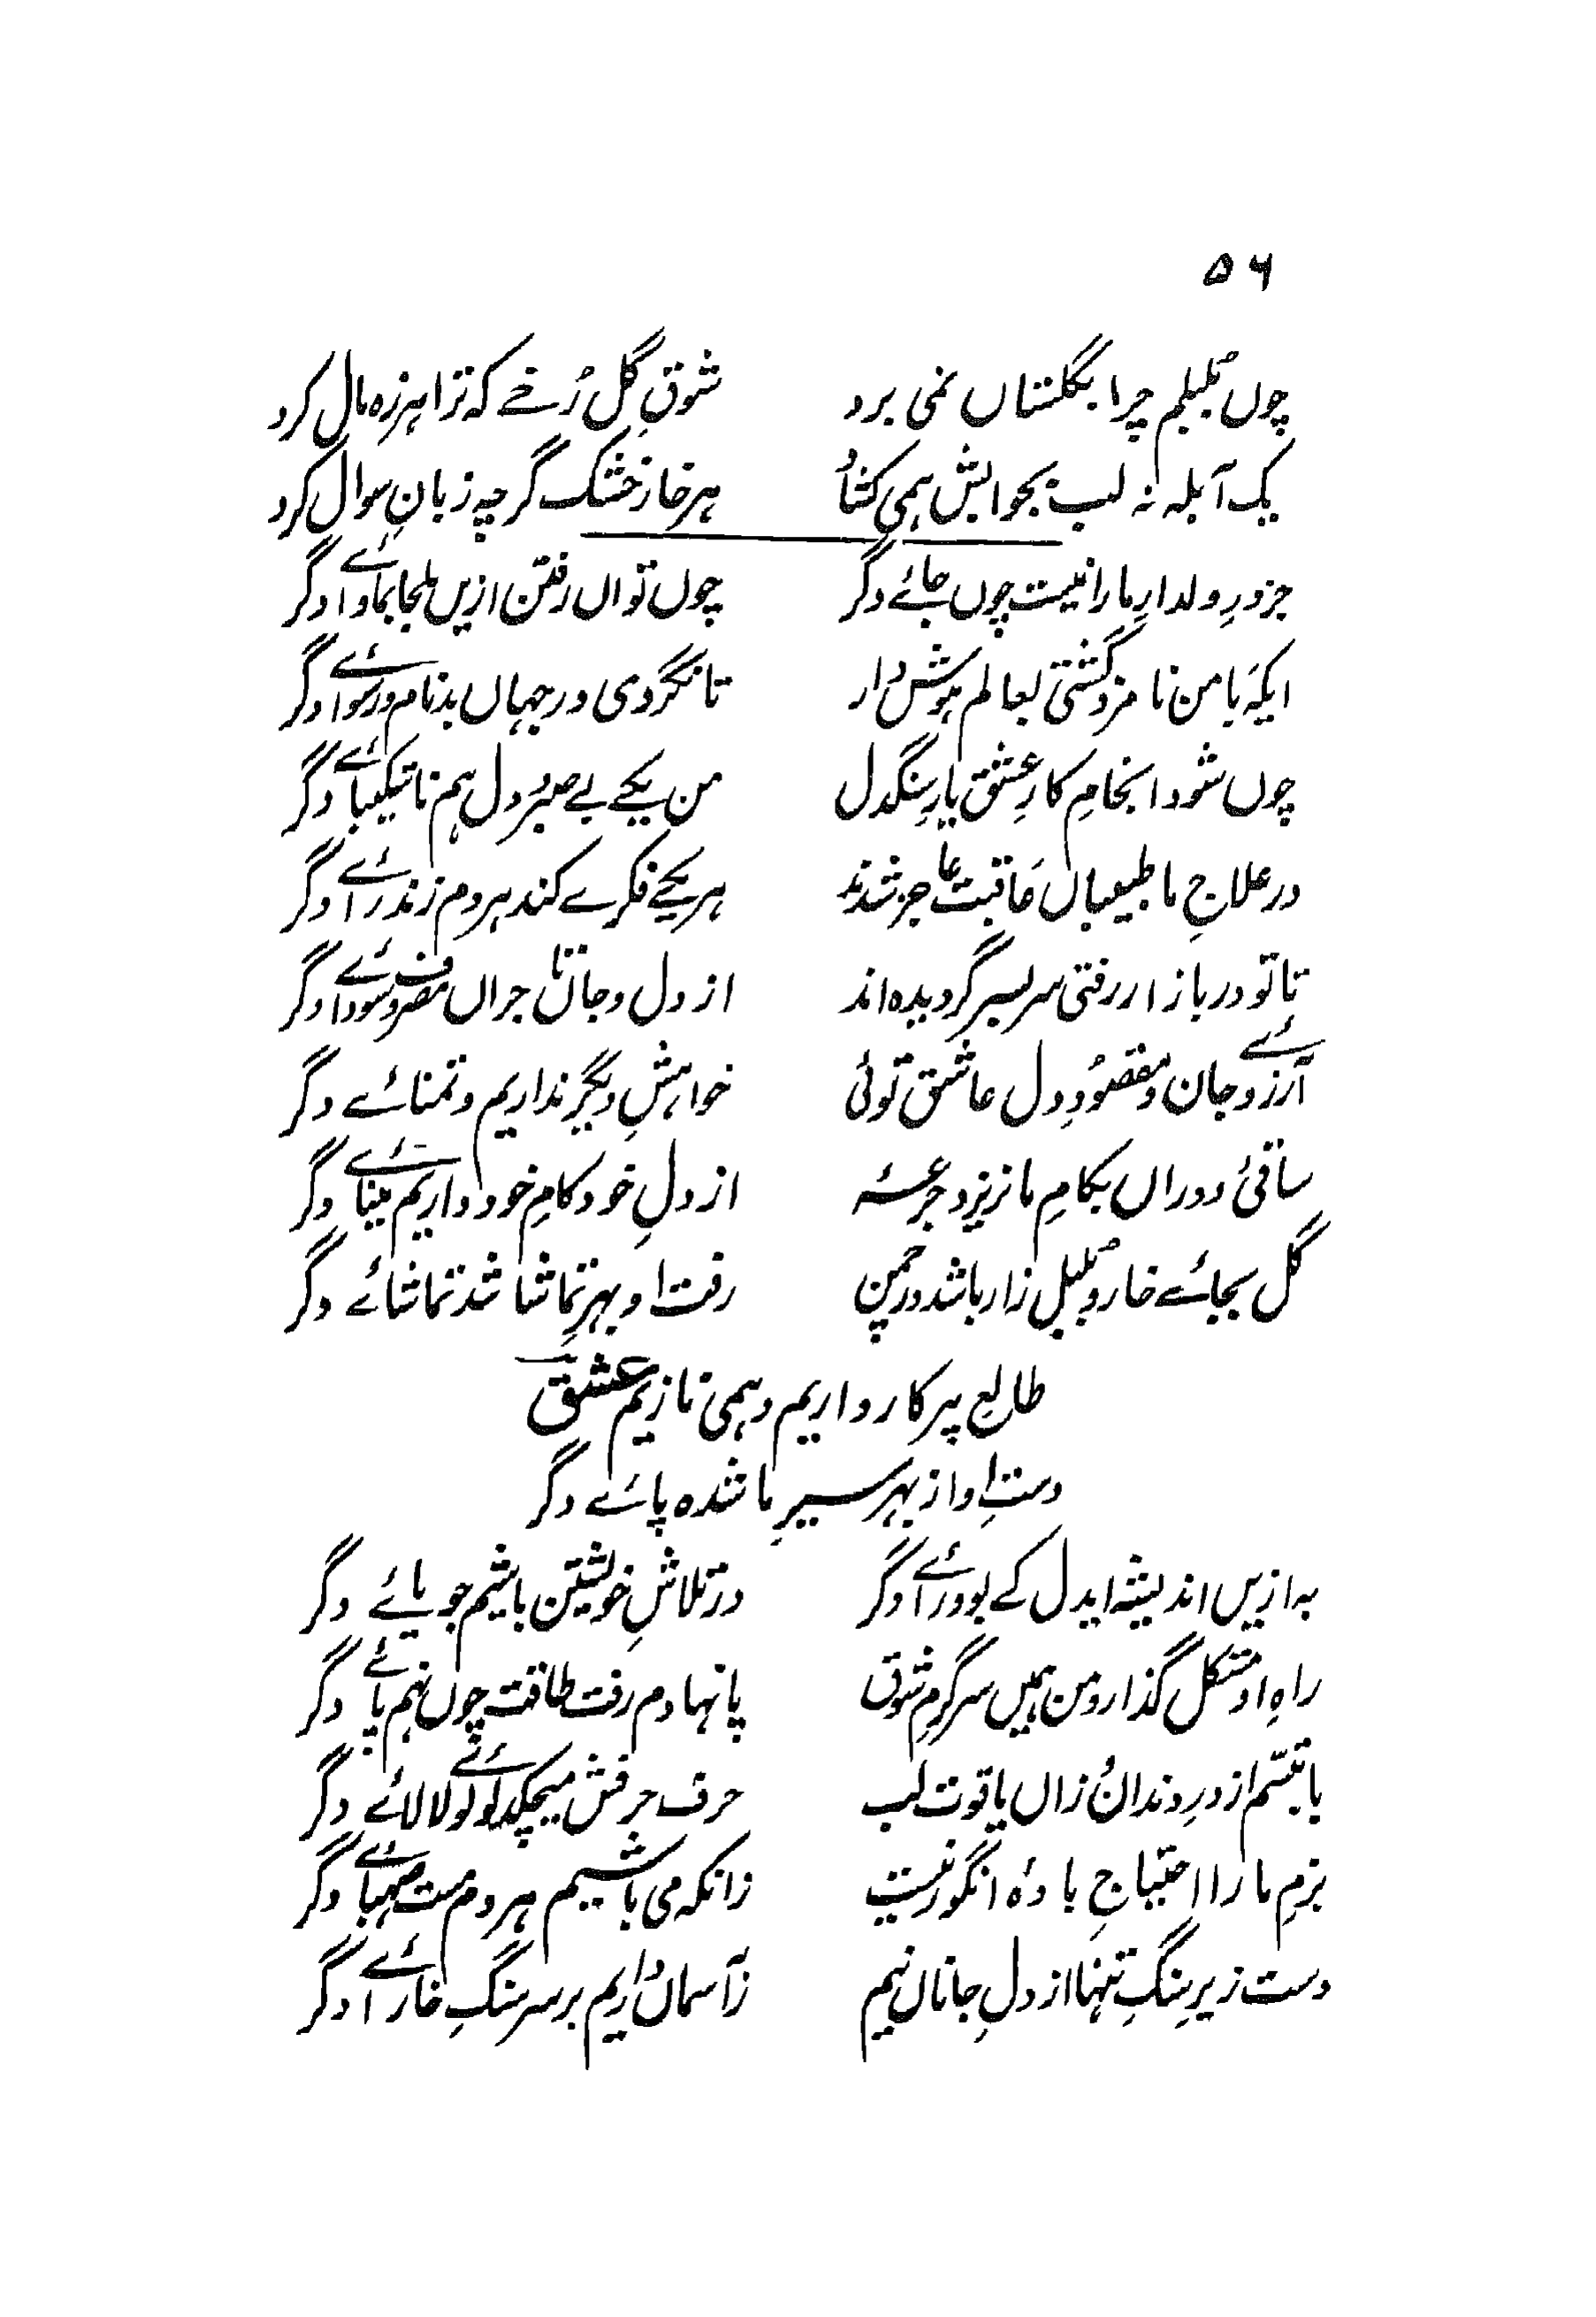 ۵۶
چوں بُلبلم چرا بگلستاں نمی برد شوقِ گل رُخے که ترا هرزه مال کرد
یک آبله نه لب بجوابش همی کشاد هر خار خشک گرچه زبانِ سوال کرد
جز درِ دلدارِ ما را نیست چوں جائے دگر چوں تواں رفتن ازیں ملجا بماوائے دگر
ایکه با من نامزد گشتی بعالم هوش دار تا نگردی در جهاں بدنام و رسوائے دگر
چوں شود انجامِ کارِ عشق یارِ سنگدل من یکے بے صبر و دل هم ناشکیبائے دگر
در علاجِ ما طبیباں عاقبت عاجز شدند هر یکے فکرے کند هر دم زند رائے دگر
تا تو در بازار رفتی سر بسر گردیده اند از دل و جاں تاجراں مصروف سودائے دگر
آرزوئے جان و مقصُودِ دل عاشق توئی خواهشِ دیگر نداریم و تمنائے دگر
ساقئ دوراں بکامِ ما نریزد جرعهٔ از دلِ خود کامِ خود داریم مینائے دگر
گل بجائے خار و بُلبل زار باشد در چمن رفت او بهرِ تماشا شد تماشائے دگر
طالعِ پرکار داریم و همی نازیم عشق
دستِ او از بهر سیرِ ما شده پائے دگر
به ازیں اندیشه ایدل کے بود رائے دگر در تلاشِ خویشتن باشیم جویائے دگر
راهِ او مشکل گذار و من همیں سرگرمِ شوق پا نهادم رفت طاقت چوں نهم پائے دگر
با تبسّم از درِ دندانُ زاں یاقوت لب حرف حرفش میچکد لولوئے لالائے دگر
بزمِ ما را احتیاجِ بادۂ انگور نیست زانکه می باشیم هر دم مست صهبائے دگر
دست زیرِ سنگِ تنها از دلِ جاناں نیم ز آسماں داریم بر سر سنگِ خارائے دگر